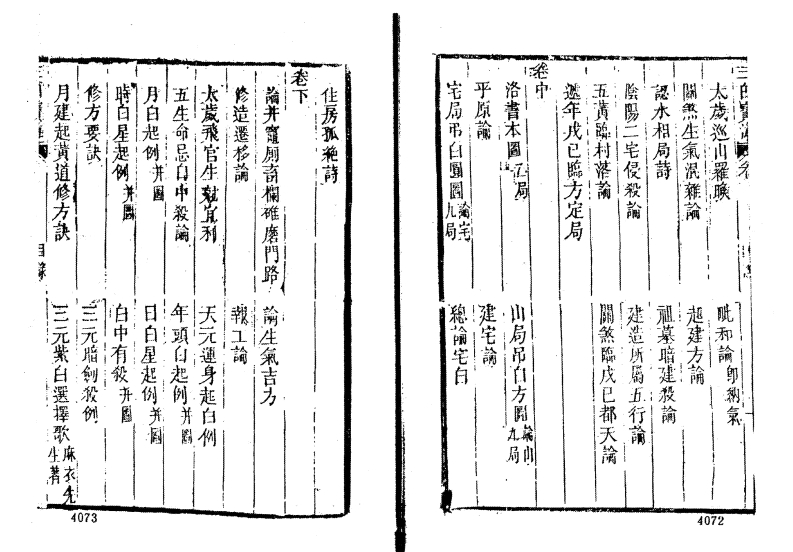 太歲巡山羅㬋
毗和論 卽納氣
關煞生氣混雜論
起建方論
認水相局詩
祖墓暗建殺論
陰陽二宅侵殺論
建造所屬五行論
五黃臨村落論
關煞臨戊己都天論
遞年戊己臨方定局
卷中
洛書本圖 五局
山局吊白方圖 論山九局
平原論
建宅論
宅局吊白圖 論宅九局
總論宅白
4072
住房孤絶詩
卷下
論井竈厠畜欄碓磨門路
論生氣吉方
修造遷移論
報工論
太歲飛宮生尅宜利
天元運身起白例
五生命忌白中殺論
年頭白起例 并圖
月白起例 并圖
日白星起例 并圖
時白星起例 并圖
白中有殺 并圖
修方要訣
三元暗劍殺例
月建起黃道修方訣
三元紫白選擇歌 麻衣先生著
目錄
4073